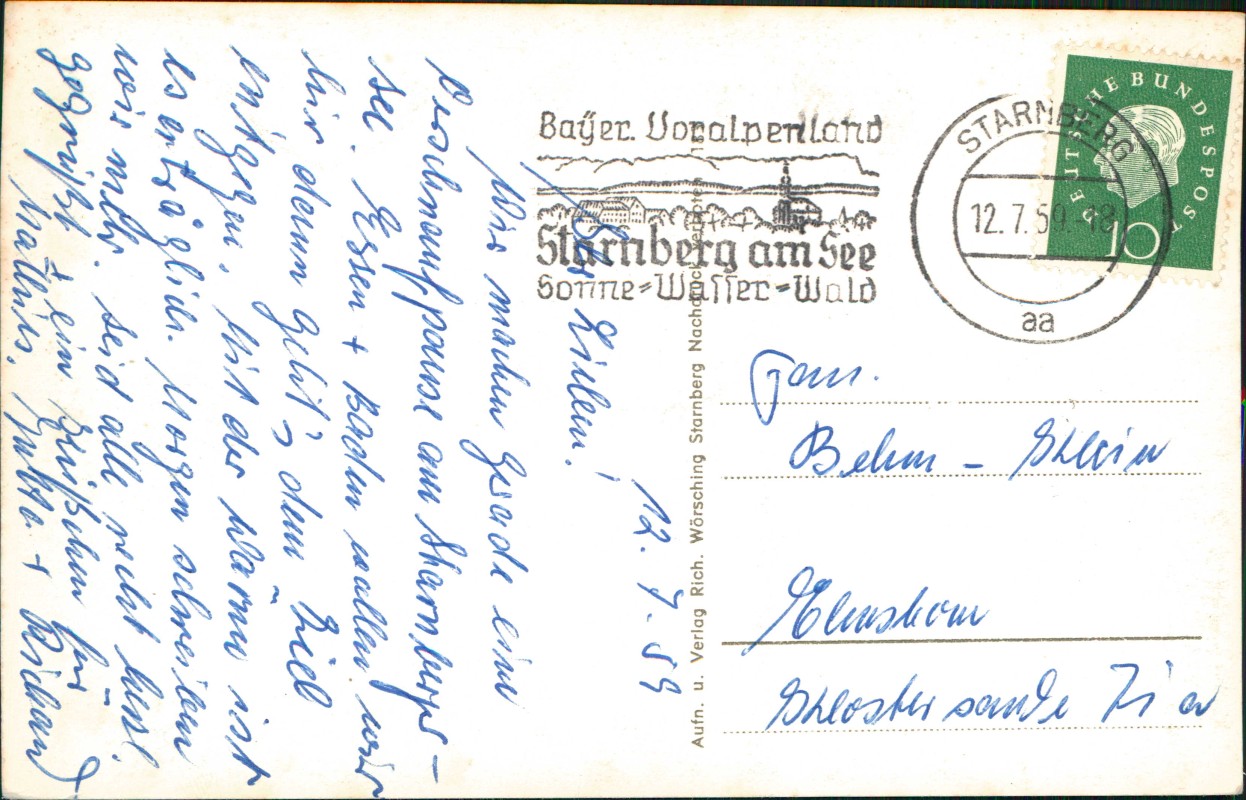 12. 7. 59
Ihr Lieben!
Wir machen gerade eine
Verschnaufpause am Starnberger-
see. Essen + Baden wollen wir
hir dann geht's dem Ziel
entgegen. Mit der Wärme ist
es erträglich. Morgen schreiben
wir mehr. Seid alle recht herzl.
gegrüßt + ein Küßchen für
Jutta + Richard
Bayer. Voralpenland
Starnberg am See
Sonne-Wasser-Wald
STARNBERG
12.7.59.-18
aa
DEUTSCHE BUNDESPOST
10
Aufn. u. Verlag Rich. Wörsching Starnberg Nachdruck verboten
Fam.
Behm - Stein
Elmshorn
Klostersande 71 a